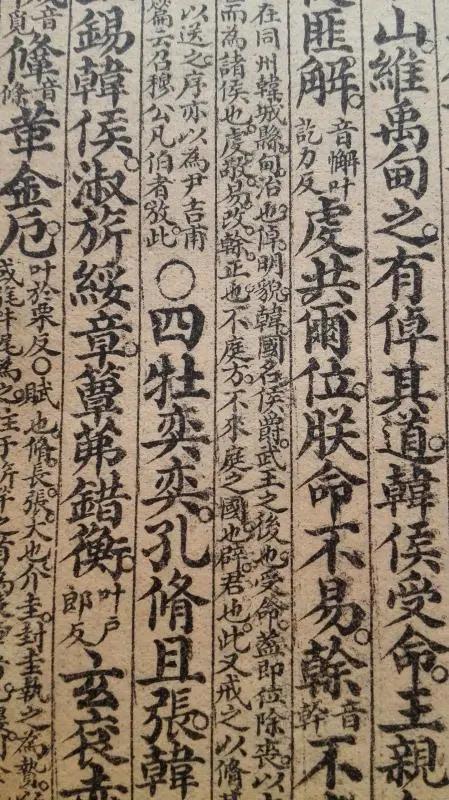 山。維禹甸之。有倬其道。韓侯受命。王親
匪解。音懈叶訖力反虔共爾位。朕命不易。榦音幹不
在同州韓城縣。甸。治也。倬。明貌。韓。國名。侯爵。武王之後也。受命。蓋即位除喪。以
而為諸侯也。虔。敬。易。改。榦。正也。不庭方。不來庭之國也。辟。君也。此又戒之以脩其
以送之。序亦以為尹吉甫
篇云召穆公凡伯者放此
○四牡奕奕。孔脩且張。韓
錫韓侯。淑旂綏章。簟茀錯衡。叶戶郎反玄袞赤
鞗音條革金厄。叶於栗反○賦也。脩。長。張。大也。介圭。封圭。執之為贄。